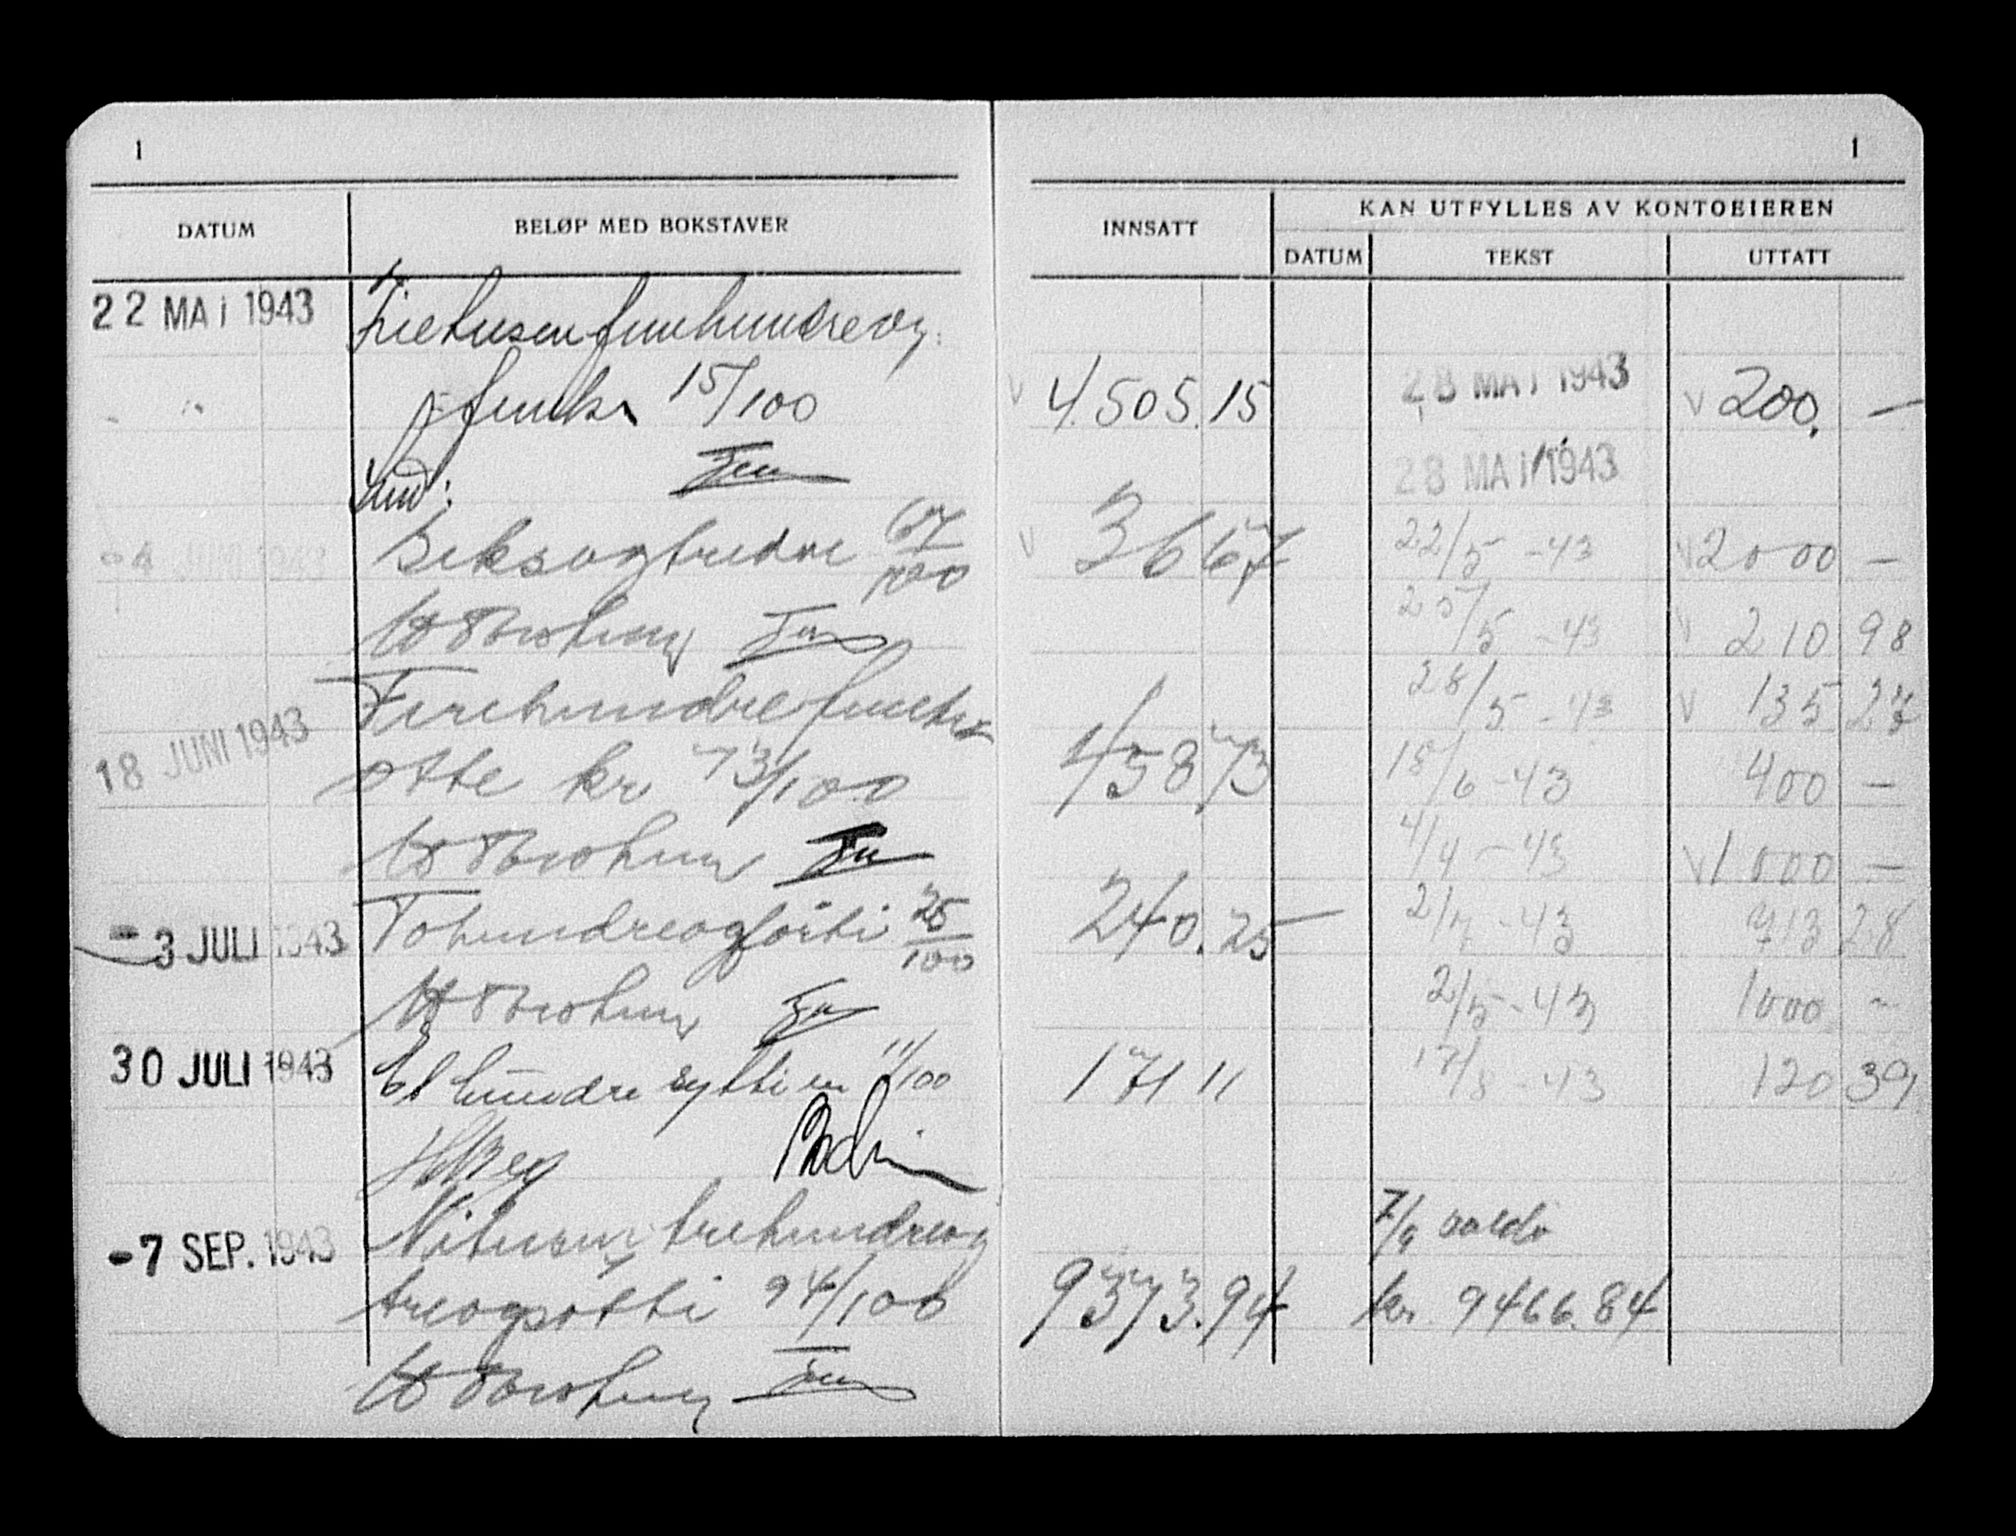 1
1
DATUM BELØP MED BOKSTAVER INNSATT KAN UTFYLLES AV KONTOEIEREN
DATUM TEKST UTTATT
22 MAI 1943 Firetusenfemhundreog
fem kr 15/100 4.505.15 28 MAI 1943 200. —
28 MAI 1943
Seksogtredve 67/100 36 67 22/5 -43 2000 —
25/5 -43 210 98
Firehundrefemti 28/5 -43 135 27
18 JUNI 1943 otte kr 73/100 458 73 18/6 -43 400 —
-43 1000 —
- 3 JULI 1943 Tohundreogførti 25/100 240.25 -43 28
2/5 -43 1000 -
30 JULI 1943 Et hundre sytti en 11/100 171 11 17/8 -43 120 39
Nitusen trehundreog 7/9 saldo
- 7 SEP. 1943 treogsøtti 94/100 9373.94 kr. 9466.84